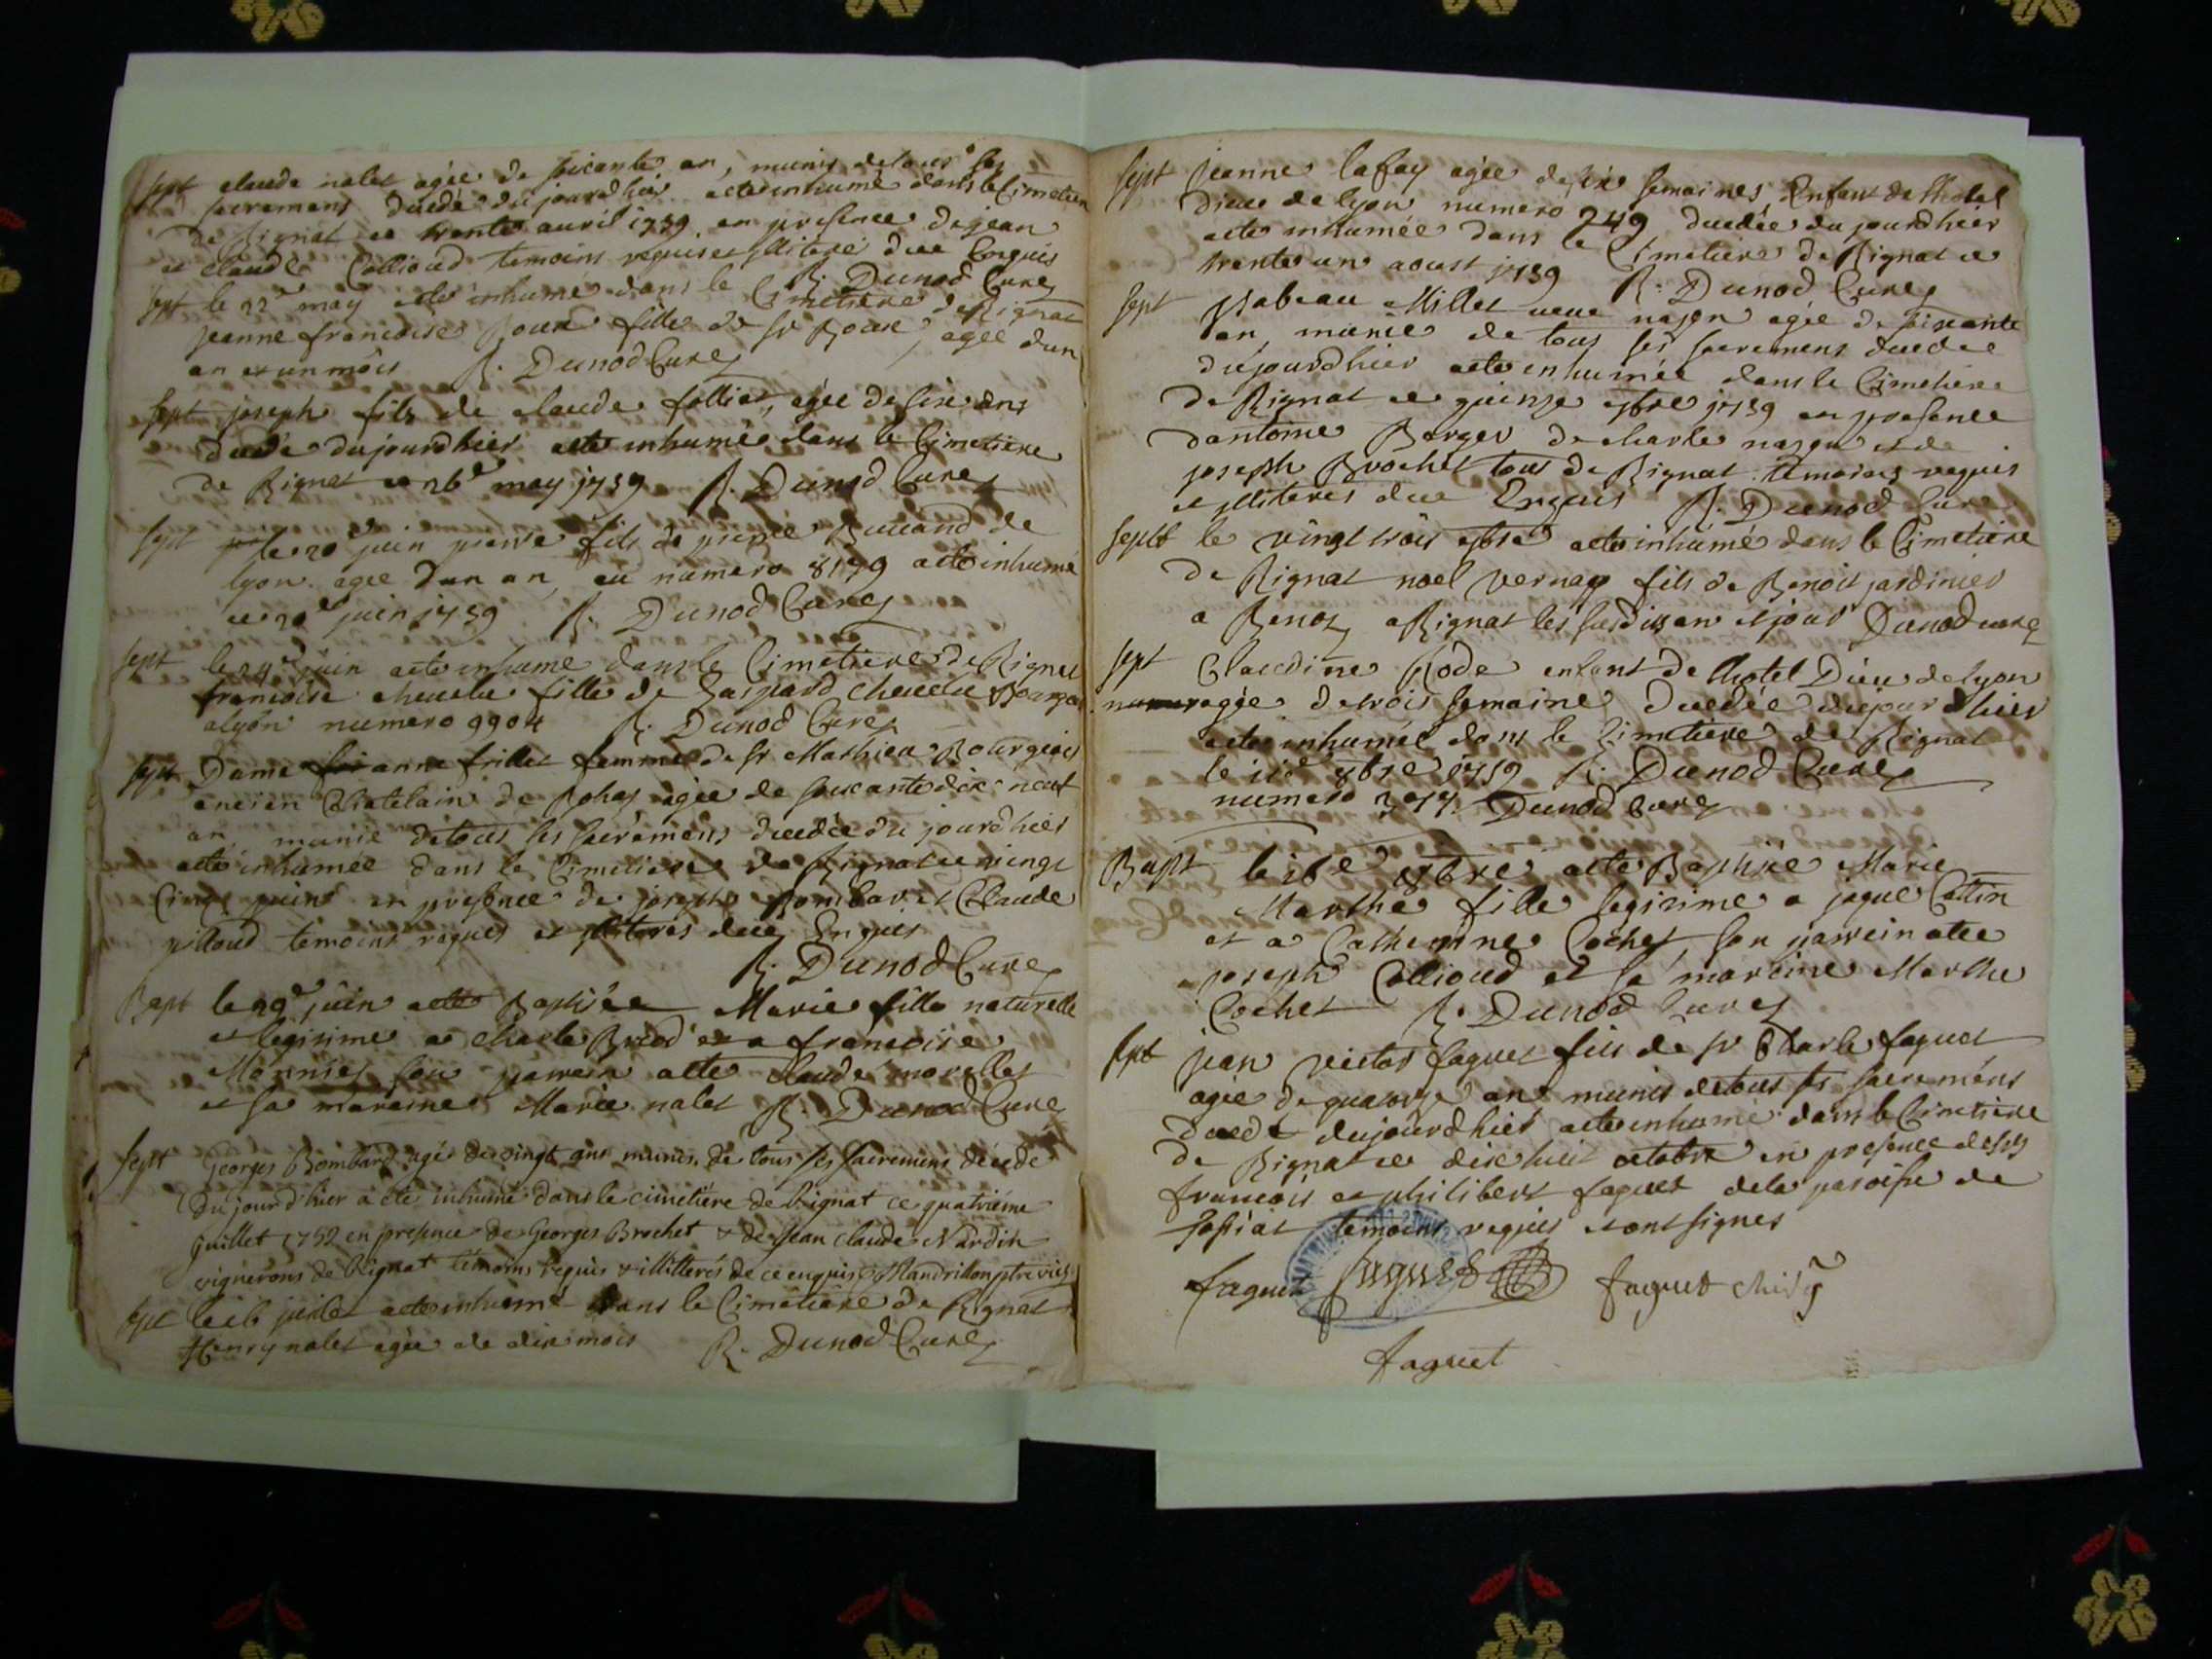 sept claude nalet agée de soicante an, munis detous ses
sacremens dcedé du jourdhier aeteinhumé dans le Cimetiere
de Rignat ce trente auril 1759 en presence de jean
et claude Collioud temoins requis et illiteré due Enquis
R. Dunod Cure
sept le 22e may ete inhumé dans le Cimetiere de Rignat
jeanne francoise Roux fille de sr Roux, agée dun
an et un môis R. Dunod Cure
sept joseph fils de claude follies, agée de sixe ans
dcedé dujourdhier aete inhumée dans le Cimetiere
de Rignat ce 26e may 1759 R. Dunod Cure
sept le 20e juin pierre fils de pierre Buuand de
lyon agée dun an, au numero 8179 aete inhumé
ce 20e juin 1759 R. Dunod Cure
sept le 24e juin aete inhumé dans le Cimetiere de Rignat
francoise cheuelu fille de Gaspard cheuelu
alyon numero 9904 R. Dunod Cure
sept Dame anne frillet femme de sr Mathieu Bourgeois
ancien Chatelain de Rohas agée de soixante dix neuf
an munie detous ses sacremens dcedée du jourdhier
aete inhumée dans le Cimetiere de Rignat ce vingt
Cinq juin en presence de joseph Bombar et Claude
pilloud temoins requis et illiteres due Enquis
R. Dunod Cure
Bapt le 29e juin aete Baptisée Marie fille naturelle
et legitime a charle Brod et a francoise
Monnier son parrein aete claude morellet
et sa mareine Marie nalet R. Dunod Cure
sept Georges Bombard agé de vingt ans munis de tous ses sacremens décédé
du jourd'hier a été inhumé dans le cimetière de Rignat ce quatriéme
juillet 1759 en presence de Georges Brochet & de Jean Claude Nardin
vignerons de Rignat témoins requis & illitterés de ce enquis Mandrillon ptre vic
sept le 16 juillet aete inhumé dans le Cimetiere de Rignat
Henry nalet agée de dix mois R. Dunod Cure
sept Jeanne lafay agée de sixe semaines, Enfant de lhotel
Dieu de lyon numero 249 dcedée du jourdhier
aete inhumée dans le Cimetiere de Rignat ce
trente un aoust 1759 R. Dunod Cure
sept ysabeau Millet ueue najon agée de soixante
an, munie de tous ses sacremens dcedée
dujourdhier aete inhumée dans le Cimetiere
de Rignat ce quinze 7bre 1759 en presence
dantoine Berger de charle najon et de
joseph Brochet tous de Rignat temoins requis
et illiteres due Enquis R. Dunod Cure
sept le vingt trois 7bre aete inhumé dans le Cimetiere
de Rignat noel vernay fils de Benoit jardinier
a Rignat Dunod cure
sept Claudine Rode enfant de lhotel Dieu de lyon
agée detrois semaine dcedée dujourdhier
aete inhumée dans le Cimetiere de Rignat
le 11e 8bre 1759 R. Dunod Cure
numero Dunod Cure
Bapt le 16e 8bre aete Baptisée Marie
Marthe fille legitime a jaque Cottin
et a Catherine Cochet, son parrein a ete
joseph Collioud et sa mareine Marthe
Cochet R. Dunod Cure
sept jean victor faguet fils de sr Charle faguet
agée de quatorze ans munis detous ses sacremens
dcedé dujourdhier aete inhumé dans le Cimetiere
de Rignat ce dix huit octobre en presence de srs
francois et philibert faguet dela paroisse de
temoins requis et ont signes
faguet faguet faguet
faguet